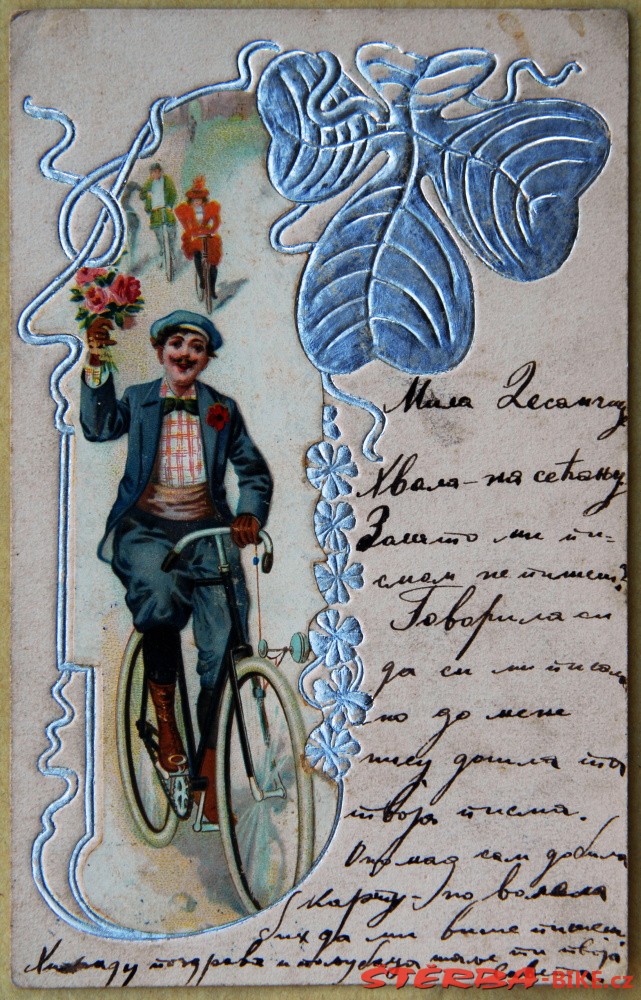 Мила Десанчице
Хвала-на сећању
Зашто ми пи=
смом не пишеш?
Говорила си
да си ми писала
но до мене
нису дошла та
твоја писма.
Ономад сам добила
карту-но волела
бих да ми више пишеш
Хиљаду поздрава и пољубаца шаље ти твоја
STERBA-BIKE.cz